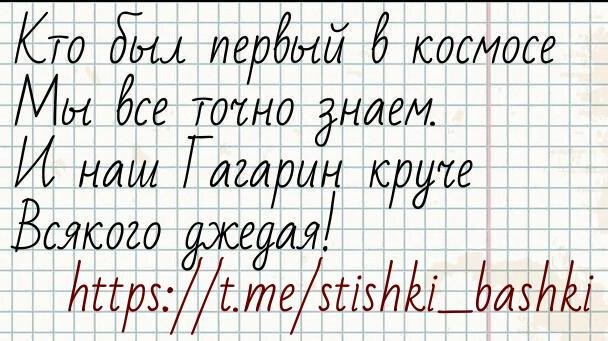 Кто был первый в космосе
Мы все точно знаем.
И наш Гагарин круче
Всякого джедая!
https://t.me/stishki_bashki